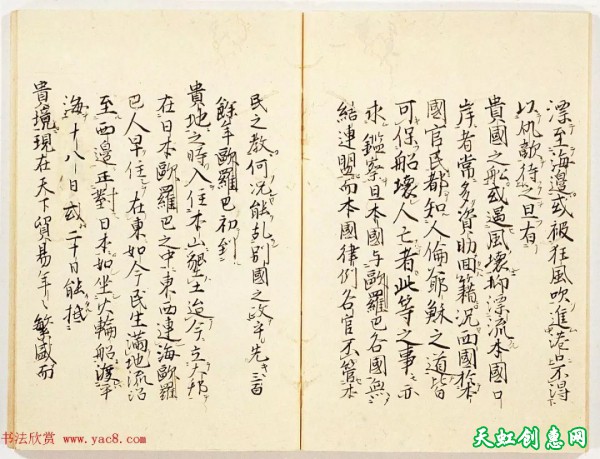 漂至海邊或被狂風吹進港只得
以仇敵待之且有
貴國之船或遇風壞抑漂流本國口
岸者常多資助回籍況四國於本
國官民都知人倫爺穌之道皆
可保船壞人亡者此等之事亦
求鑑察且本國與歐羅巴各國無
結連盟而本國律例各官不管本
民之教何況能乱別國之政乎先三百
餘年歐羅巴初到
貴地之時入住本山墾土迨今立大邦
在日本歐羅巴之中東西連海歐羅
巴人早住在東如今民生滿地流沿
至西邊正對日本如坐火輪船渡平
海十八日或二十日能抵
貴境現在天下貿易年々繁盛而
书法欣赏 www.yac8.com
天虹创惠网